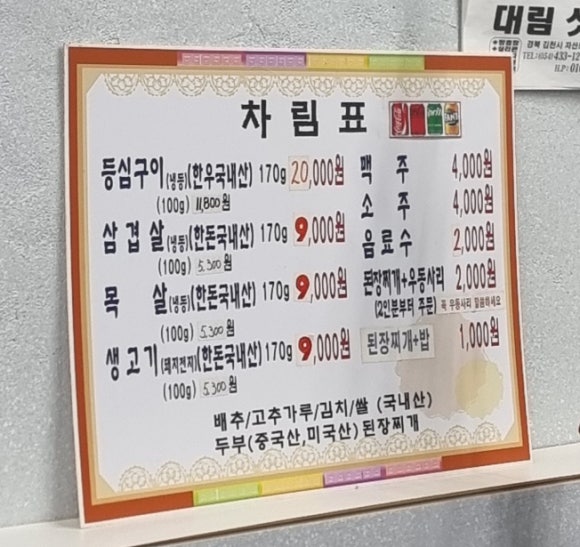 대림
경북 김천시
TEL:(054)433-12
H.P: 010
차림표
등심구이(냉동)(한우국내산) 170g 20,000원
(100g) 11,800원
삼겹살(냉동)(한돈국내산) 170g 9,000원
(100g) 5,300원
목 살(냉동)(한돈국내산) 170g 9,000원
(100g) 5,300원
생고기(돼지전지)(한돈국내산) 170g 9,000원
(100g) 5,300원
맥 주 4,000원
소 주 4,000원
음료수 2,000원
된장찌개+우동사리 2,000원
(2인분부터 주문) 꼭 우동사리 말씀하세요
된장찌개+밥 1,000원
배추/고추가루/김치/쌀 (국내산)
두부(중국산,미국산) 된장찌개